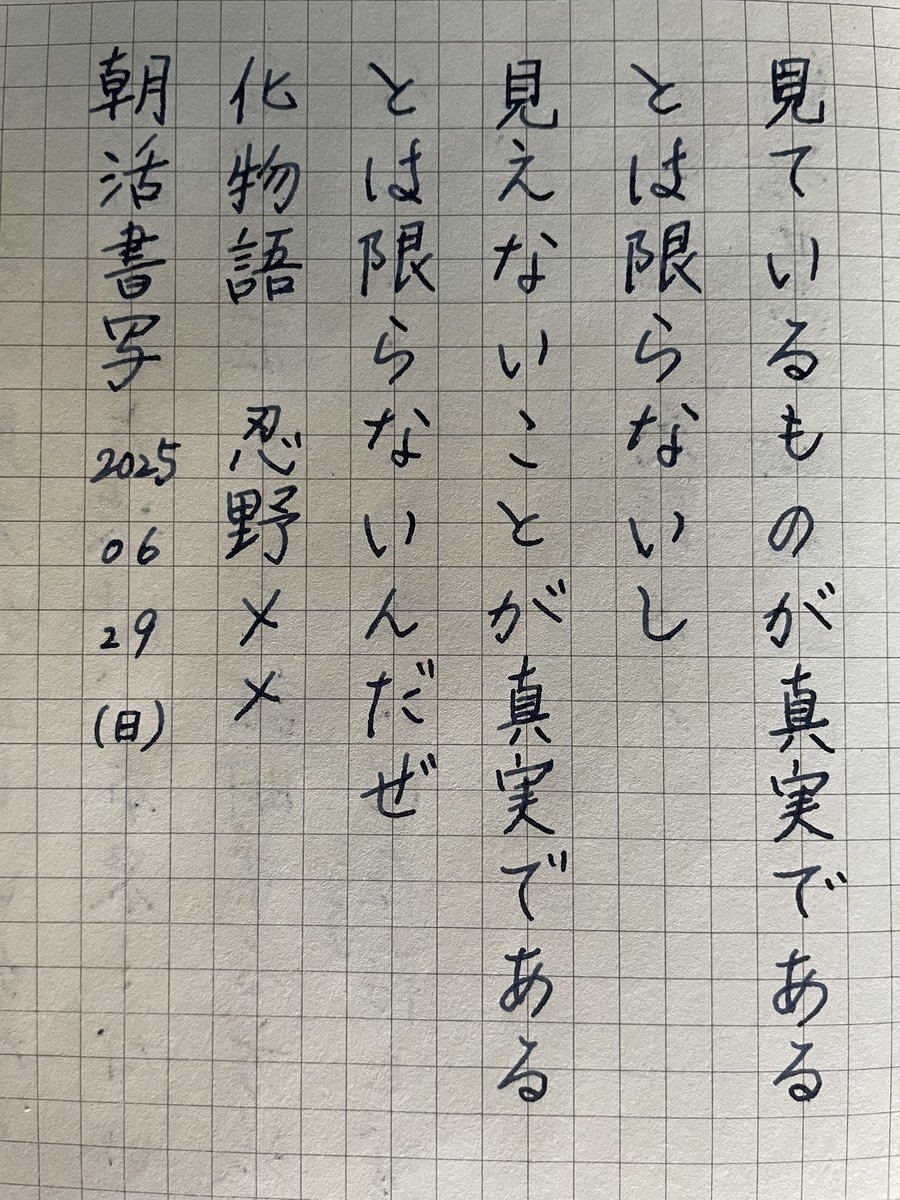 見ているものが真実である
とは限らないし
見えないことが真実である
とは限らないんだぜ
化物語 忍野メメ
朝活書写 2025 06 29 (日)